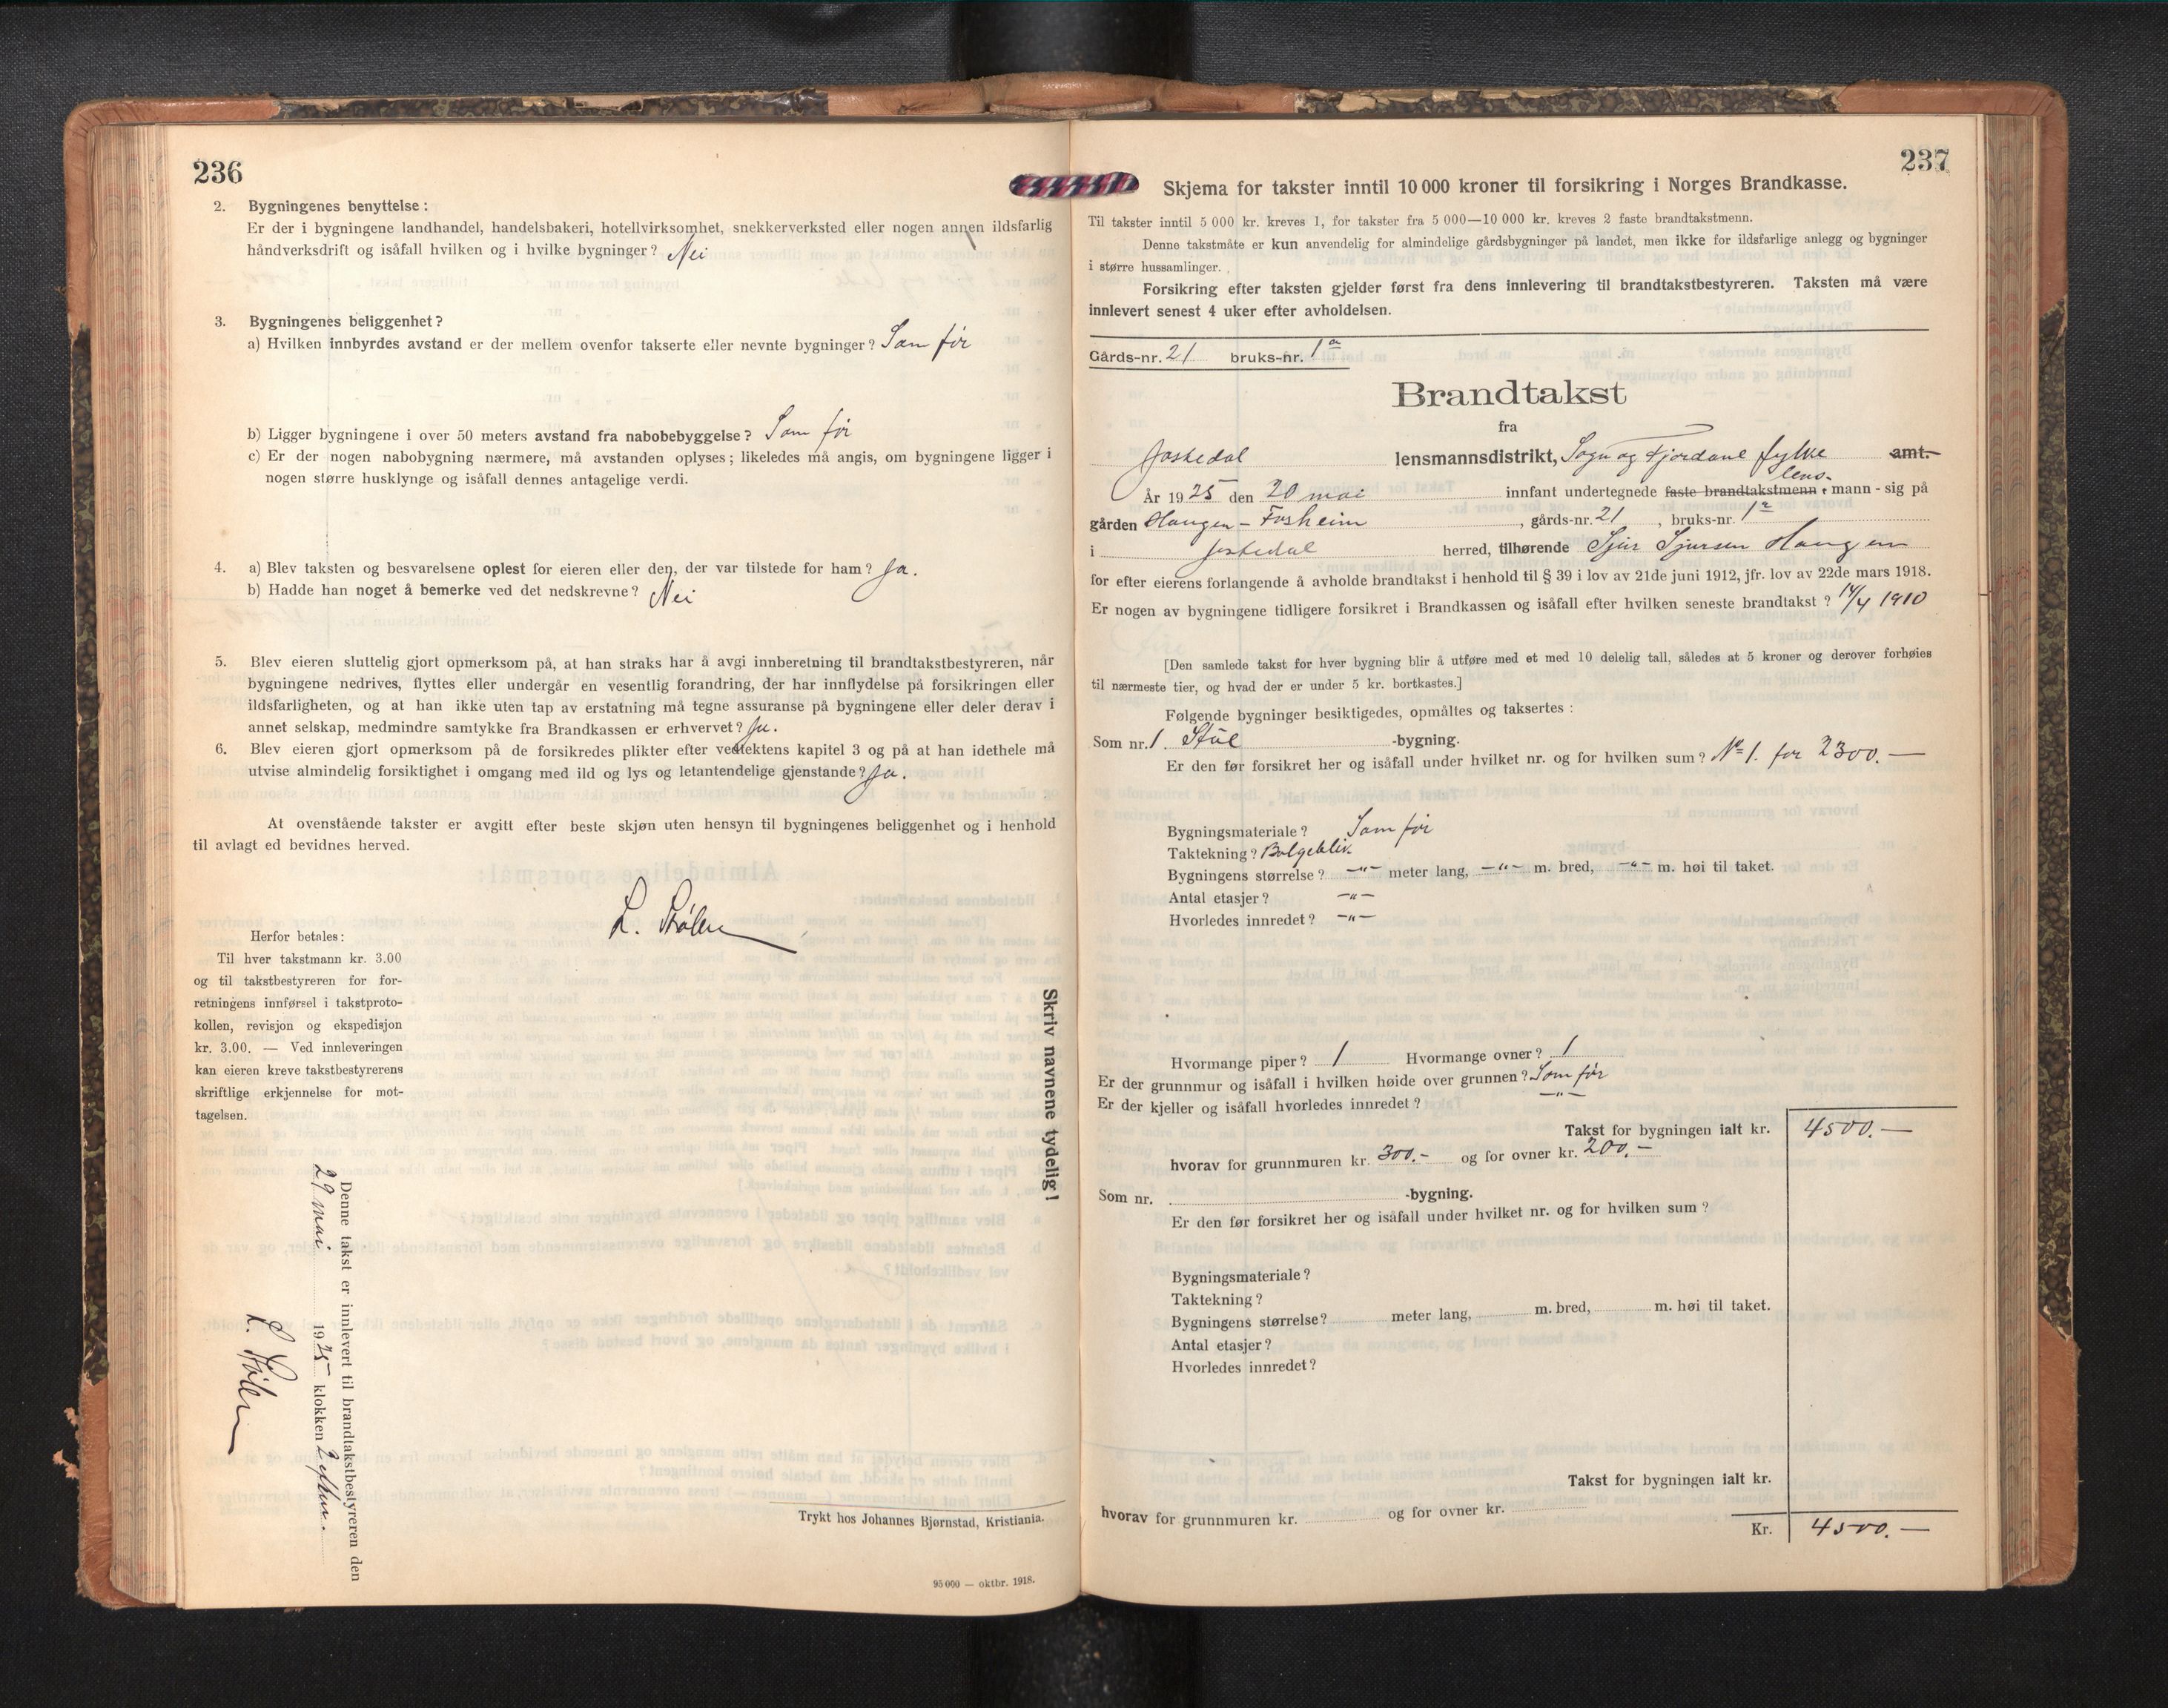 236
2. Bygningenes benyttelse:
Er der i bygningene landhandel, handelsbakeri, hotellvirksomhet, snekkerverksted eller nogen annen ildsfarlig
håndverksdrift og isåfall hvilken og i hvilke bygninger? Nei
3. Bygningenes beliggenhet?
a) Hvilken innbyrdes avstand er der mellem ovenfor takserte eller nevnte bygninger? Som før
b) Ligger bygningene i over 50 meters avstand fra nabobebyggelse? Som før
c) Er der nogen nabobygning nærmere, må avstanden oplyses; likeledes må angis, om bygningene ligger i
nogen større husklynge og isåfall dennes antagelige verdi.
4. a) Blev taksten og besvarelsene oplest for eieren eller den, der var tilstede for ham? Ja.
b) Hadde han noget å bemerke ved det nedskrevne? Nei
5. Blev eieren sluttelig gjort opmerksom på, at han straks har å avgi innberetning til brandtakstbestyreren, når
bygningene nedrives, flyttes eller undergår en vesentlig forandring, der har innflydelse på forsikringen eller
ildsfarligheten, og at han ikke uten tap av erstatning må tegne assuranse på bygningene eller deler derav i
annet selskap, medmindre samtykke fra Brandkassen er erhvervet? Ja.
6. Blev eieren gjort opmerksom på de forsikredes plikter efter vedtektens kapitel 3 og på at han idethele må
utvise almindelig forsiktighet i omgang med ild og lys og letantendelige gjenstande? Ja.
At ovenstående takster er avgitt efter beste skjøn uten hensyn til bygningenes beliggenhet og i henhold
til avlagt ed bevidnes herved.
L. Stølen
Herfor betales:
Til hver takstmann kr. 3.00
og til takstbestyreren for for-
retningens innførsel i takstproto-
kollen, revisjon og ekspedisjon
kr. 3.00. — Ved innleveringen
kan eieren kreve takstbestyrerens
skriftlige erkjennelse for mot-
tagelsen.
Skriv navnene tydelig!
Denne takst er innlevert til brandtakstbestyreren den
29 mai 1925 klokken 2 efterm.
L. Stølen
Trykt hos Johannes Bjørnstad, Kristiania.
95 000 — oktbr. 1918.
237
Skjema for takster inntil 10 000 kroner til forsikring i Norges Brandkasse.
Til takster inntil 5 000 kr. kreves 1, for takster fra 5 000—10 000 kr. kreves 2 faste brandtakstmenn.
Denne takstmåte er kun anvendelig for almindelige gårdsbygninger på landet, men ikke for ildsfarlige anlegg og bygninger
i større hussamlinger.
Forsikring efter taksten gjelder først fra dens innlevering til brandtakstbestyreren. Taksten må være
innlevert senest 4 uker efter avholdelsen.
Gårds-nr. 21 bruks-nr. 1 a
Brandtakst
fra
Jostedal lensmannsdistrikt, Sogn og Fjordane fylke amt.
År 1925 den 20 mai innfant undertegnede faste brandtakstmenn lens-mann - sig på
gården Haugen - Fosheim, gårds-nr. 21, bruks-nr. 1 a
i Jostedal herred, tilhørende Sjur Sjursen Haugen
for efter eierens forlangende å avholde brandtakst i henhold til § 39 i lov av 21de juni 1912, jfr. lov av 22de mars 1918.
Er nogen av bygningene tidligere forsikret i Brandkassen og isåfall efter hvilken seneste brandtakst? 14/4 1910
[Den samlede takst for hver bygning blir å utføre med et med 10 delelig tall, således at 5 kroner og derover forhøies
til nærmeste tier, og hvad der er under 5 kr. bortkastes.]
Følgende bygninger besiktigedes, opmåltes og taksertes:
Som nr. 1. Stue -bygning.
Er den før forsikret her og isåfall under hvilket nr. og for hvilken sum? No 1. for 2300.—
Bygningsmateriale? Som før
Taktekning? Bølgeblik
Bygningens størrelse? —"— meter lang, —"— m. bred, —"— m. høi til taket.
Antal etasjer? —"—
Hvorledes innredet? —"—
Hvormange piper? 1 Hvormange ovner? 1
Er der grunnmur og isåfall i hvilken høide over grunnen? Som før
Er der kjeller og isåfall hvorledes innredet? —"—
Takst for bygningen ialt kr. 4500.—
hvorav for grunnmuren kr. 300.- og for ovner kr. 200.—
Som nr. -bygning.
Er den før forsikret her og isåfall under hvilket nr. og for hvilken sum?
Bygningsmateriale?
Taktekning?
Bygningens størrelse? meter lang, m. bred, m. høi til taket.
Antal etasjer?
Hvorledes innredet?
Takst for bygningen ialt kr.
hvorav for grunnmuren kr. og for ovner kr.
Kr. 4500.—